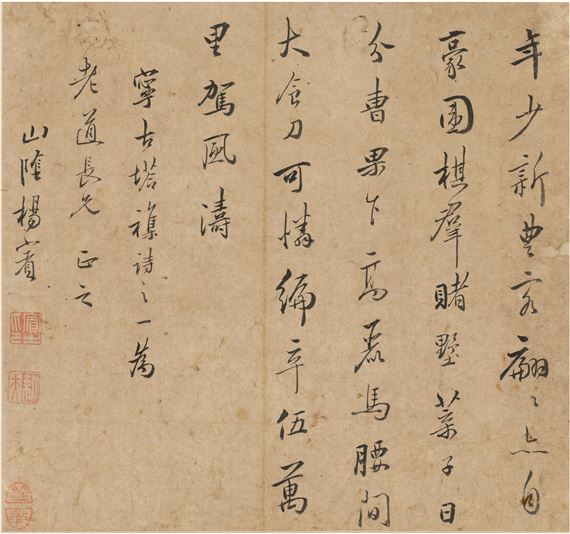 年少新豊客翩〻亦自
豪圍棋羣賭墅葉子日
分曹果下高麗馬腰間
大食刀可憐編卒伍萬
里駕風濤
寧古塔襍詩之一為
老道長兄 正之
山陰楊賓